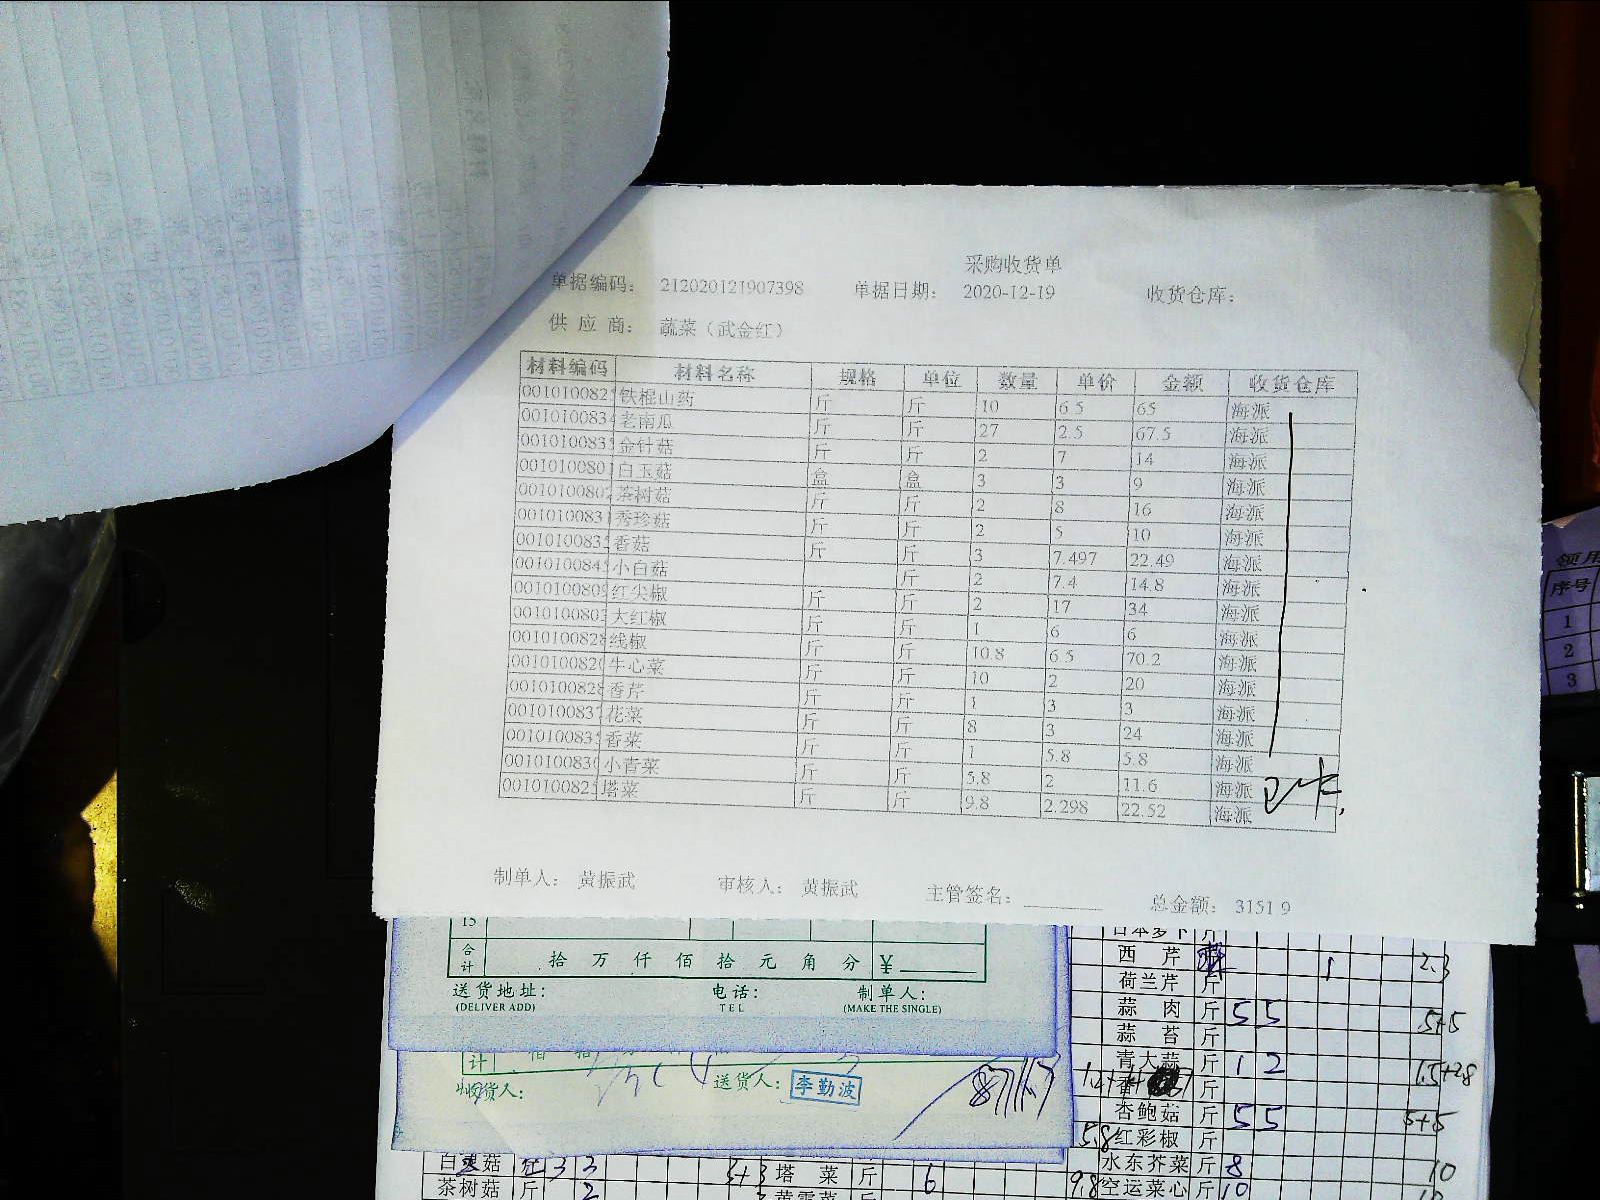 采购收货单
单据编码： 212020121907398 单据日期： 2020-12-19 收货仓库：
供 应 商： 蔬菜（武金红）
材料编码 材料名称 规格 单位 数量 单价 金额 收货仓库
001010082 铁棍山药 斤 斤 10 6.5 65 海派
001010083 老南瓜 斤 斤 27 2.5 67.5 海派
001010083 金针菇 斤 斤 2 7 14 海派
001010080 白玉菇 盒 盒 3 3 9 海派
001010080 茶树菇 斤 斤 2 8 16 海派
001010083 秀珍菇 斤 斤 2 5 10 海派
001010083 香菇 斤 斤 3 7.497 22.49 海派
001010084 小白菇 斤 2 7.4 14.8 海派
001010080 红尖椒 斤 斤 2 17 34 海派
001010080 大红椒 斤 斤 1 6 6 海派
001010082 线椒 斤 斤 10.8 6.5 70.2 海派
001010082 牛心菜 斤 斤 10 2 20 海派
001010082 香芹 斤 斤 1 3 3 海派
001010083 花菜 斤 斤 8 3 24 海派
001010083 香菜 斤 斤 1 5.8 5.8 海派
001010083 小青菜 斤 斤 5.8 2 11.6 海派
001010082 塔菜 斤 斤 9.8 2.298 22.52 海派
制单人： 黄振武 审核人： 黄振武 主管签名： 总金额： 3151.9
15
合计 拾 万 仟 佰 拾 元 角 分 ¥
送货地址： 电话： 制单人：
(DELIVER ADD) TEL (MAKE THE SINGLE)
计
收货人： 送货人： 李勤波
西 芹 1 2.3
荷兰芹 斤
蒜 肉 斤 5 5 5+5
蒜 苔 斤
青大蒜 斤 1 2 1.5+2.8
杏鲍菇 斤 5 5 5+5
5.8 红彩椒 斤
水东芥菜 斤 8 10
9.8 空运菜心 斤 10
3 3 3+3 塔 菜 斤 6
茶树菇 斤 2
领用
序号
1
2
3